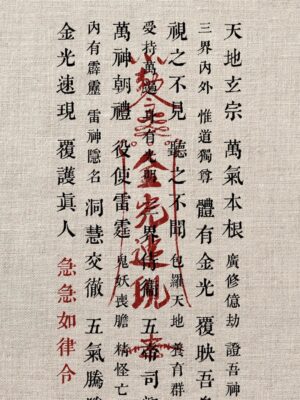 天地玄宗 萬氣本根 廣修億劫 證吾神
三界內外 惟道獨尊 體有金光 覆映吾身
視之不見 聽之不聞 包羅天地 養育群
受持萬遍 身有光明 三界侍衛 五帝司
萬神朝禮 役使雷霆 鬼妖喪膽 精怪亡
內有霹靂 雷神隱名 洞慧交徹 五氣騰
金光速現 覆護眞人
急急如律令
金光速現